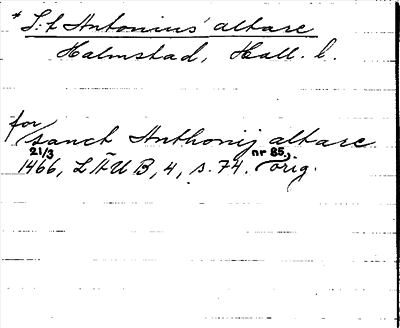 * S:t Antonius' altare
Halmstad, Hall. l.
for sanct Anthonij altare
21/3 nr 85,
1466, LÄUB, 4, s. 74. orig.